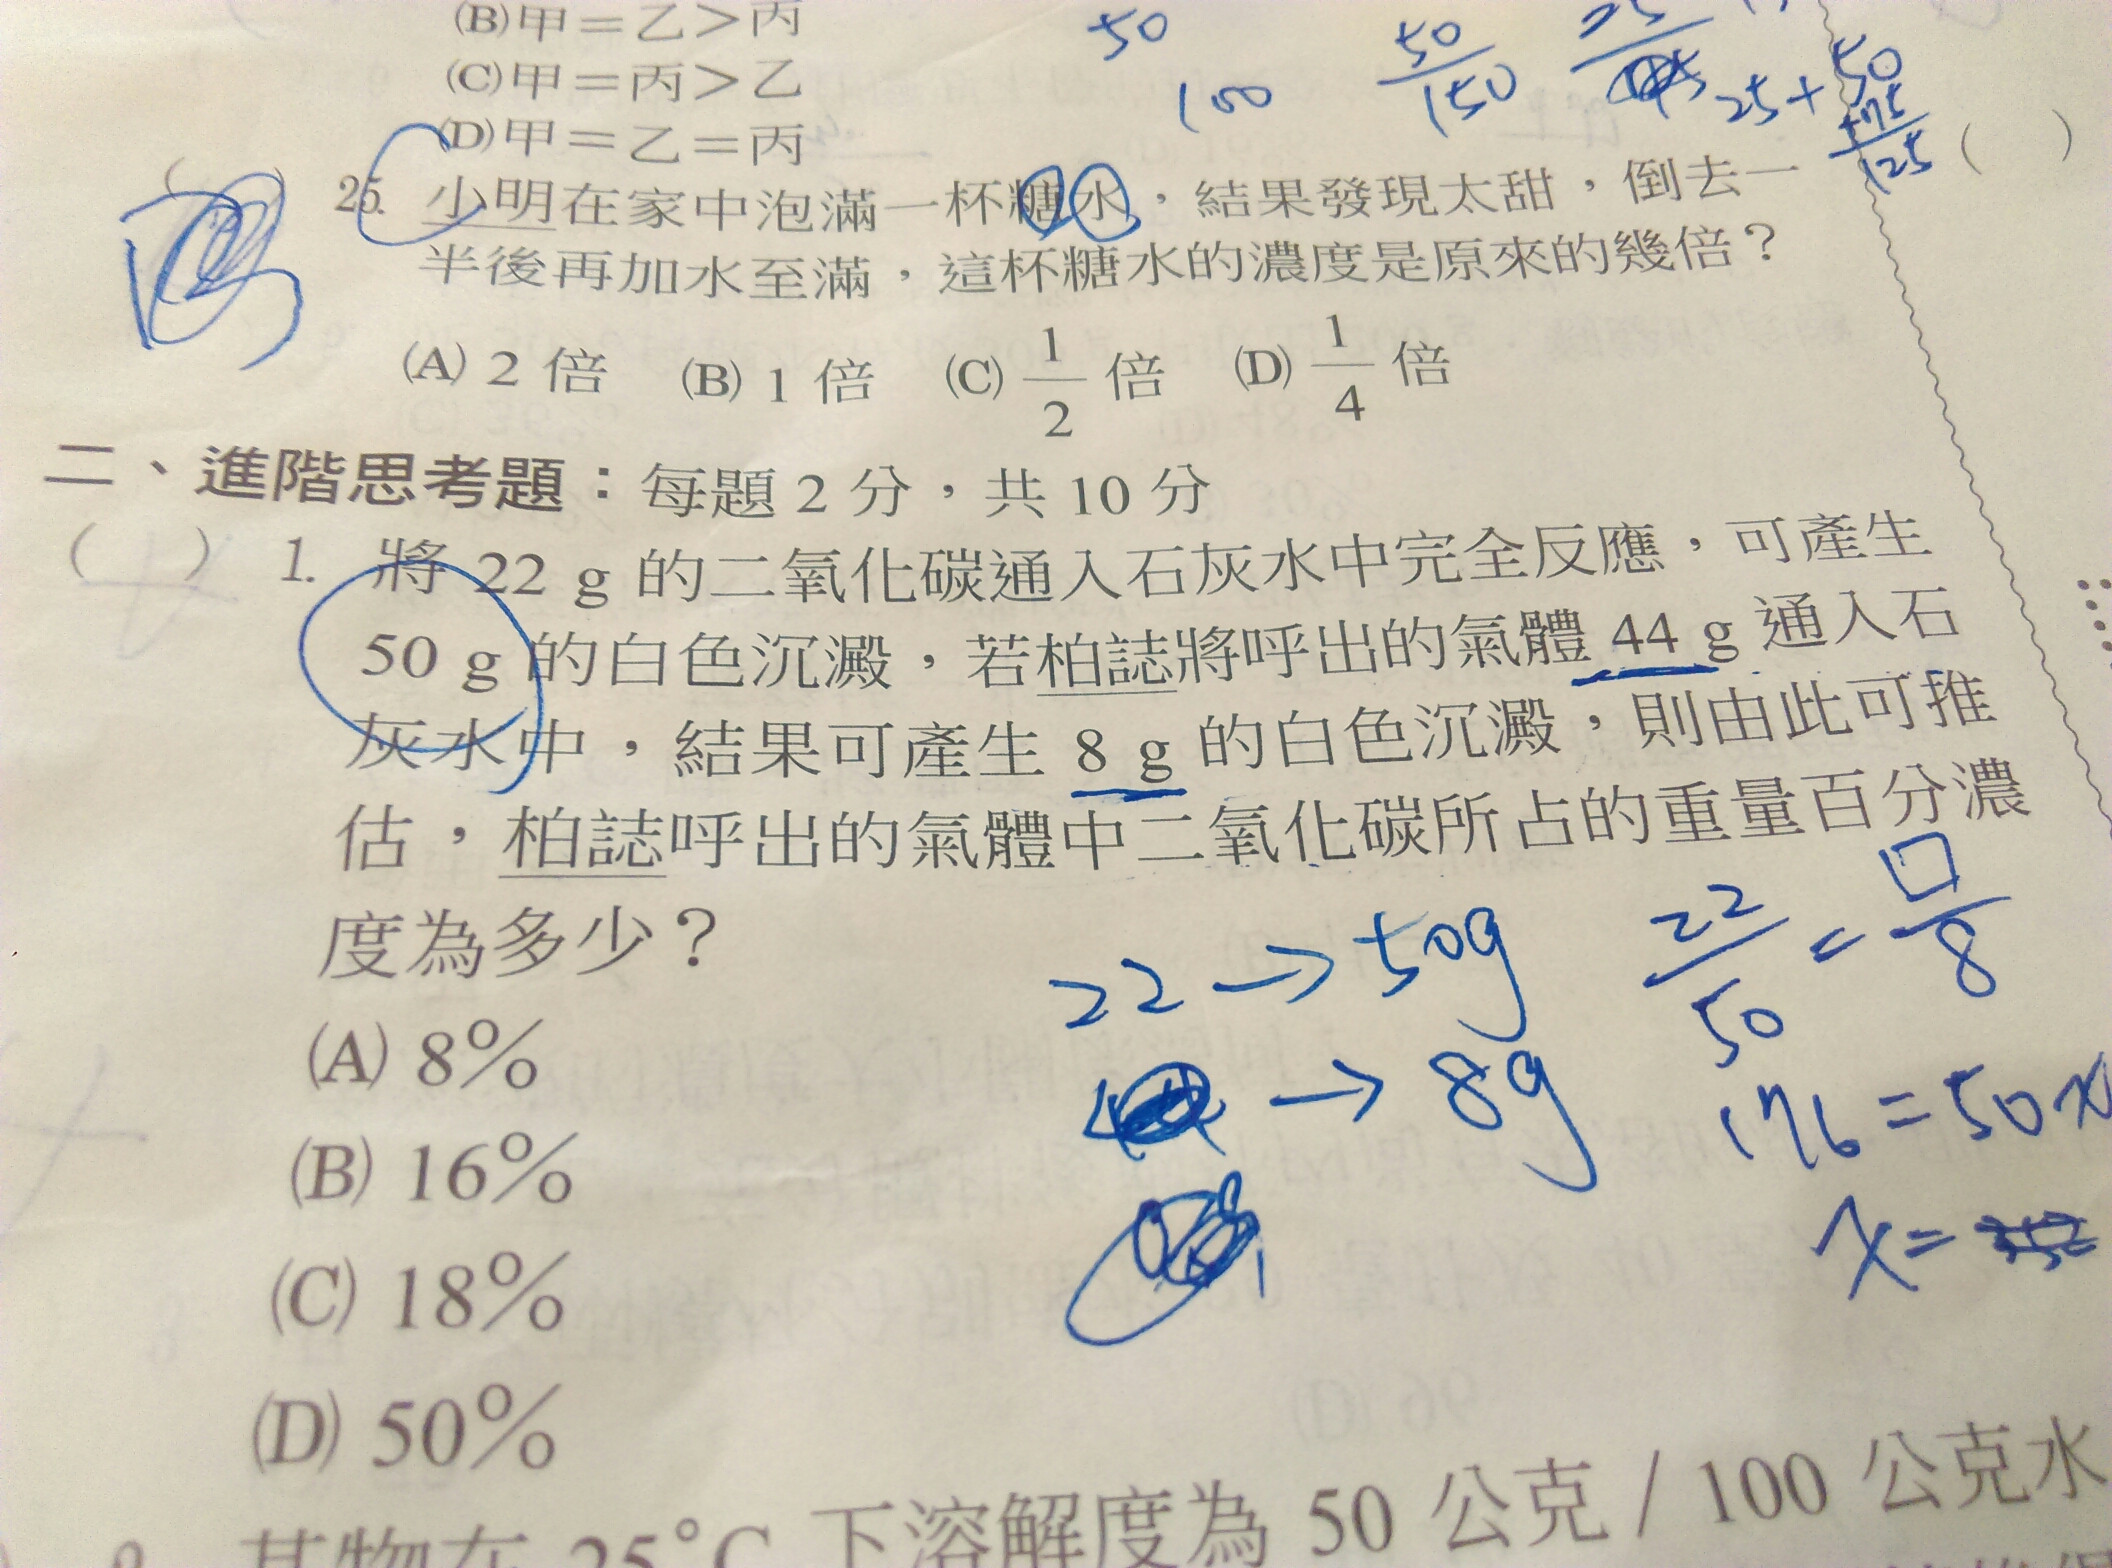 (B)甲＝乙＞丙
(C)甲＝丙＞乙
(D)甲＝乙＝丙
50
100
50/150
25+
50
+75
125
(　)
25. 小明在家中泡滿一杯糖水，結果發現太甜，倒去一
半後再加水至滿，這杯糖水的濃度是原來的幾倍？
(A) 2 倍 (B) 1 倍 (C) 1/2 倍 (D) 1/4 倍
二、進階思考題：每題 2 分，共 10 分
(　) 1. 將 22 g 的二氧化碳通入石灰水中完全反應，可產生
50 g 的白色沉澱，若柏誌將呼出的氣體 44 g 通入石
灰水中，結果可產生 8 g 的白色沉澱，則由此可推
估，柏誌呼出的氣體中二氧化碳所占的重量百分濃
度為多少？
22→50g
22/50=□/8
→8g
176=50x
x=
(A) 8%
(B) 16%
(C) 18%
(D) 50%
25°C 下溶解度為 50 公克／100 公克水